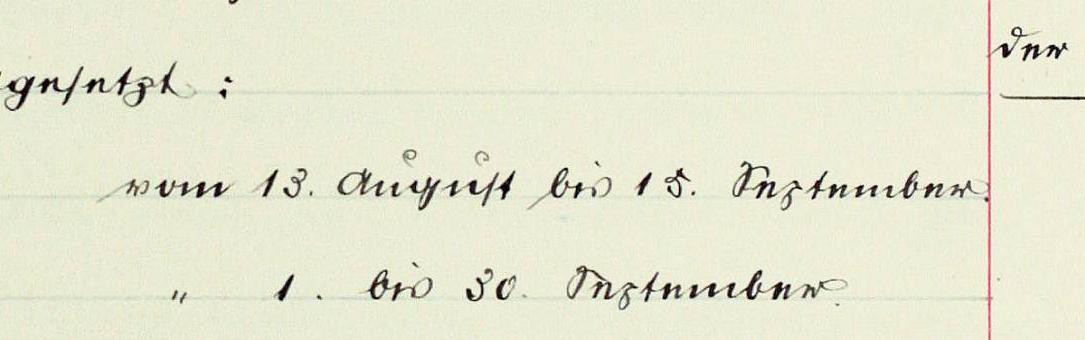 der
gesetzt :
vom 13. August bis 15. September.
„ 1. bis 30. September.